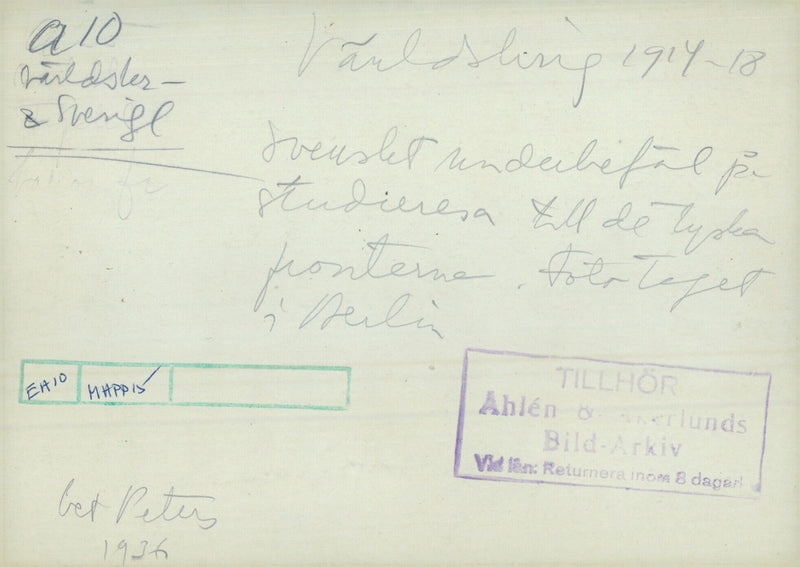 a10
världskr-
& Sverige
Världskrig 1914-18
svenskt underbefäl på
studieresa till de tyska
fronterna. Foto taget
i Berlin
EA10 MAPP15
TILLHÖR
Ahlén & Åkerlunds
Bild-Arkiv
Vid lån: Returnera inom 8 dagar!
bet Peters
1936